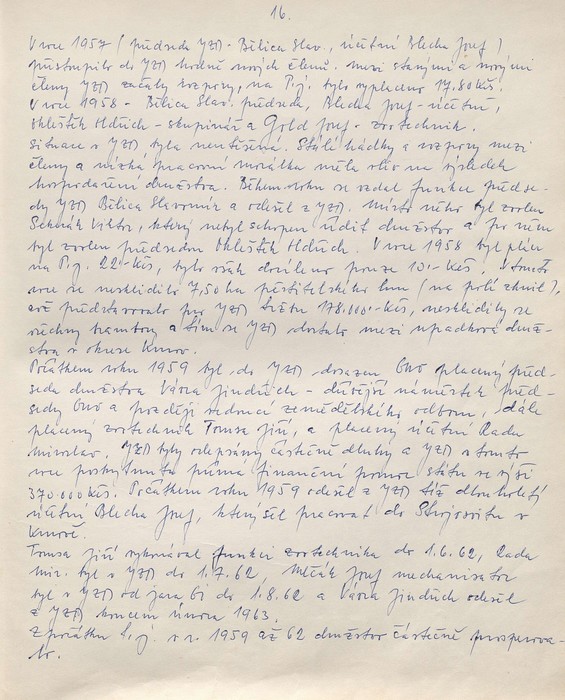 16.
V roce 1957 (předseda JZD - Bělica Slav., účetní Blecha Josef)
přistoupilo do JZD hodně nových členů. Mezi starými a novými
členy JZD začaly rozpory, na P.j. bylo vyplaceno 17.80 Kčs.
V roce 1958 - Bělica Slav. předseda, Blecha Josef - účetní,
Oldřich - skupinář a Gold Josef - zootechnik.
Situace v JZD byla neutěšená. Stálé hádky a rozpory mezi
členy a nízká pracovní morálka měla vliv na výsledek
hospodaření družstva. Během roku se vzdal funkce předse-
dy JZD Bělica Slavomír a odešel z JZD. Místo něho byl zvolen
Viktor, který nebyl schopen řídit družstvo a po něm
byl zvolen předsedou Oldřich. V roce 1958 byl plán
na P.j. 22.- Kčs, bylo však docíleno pouze 10.- Kčs. V tomto
roce se nesklidilo 7,50 ha pěstitelského lnu (na poli zhnil),
což představovalo pro JZD ztrátu 178.000.- Kčs, nesklidily se
všechny brambory a tím se JZD dostalo mezi úpadková druž-
stva v okrese Krnov.
Počátkem roku 1959 byl do JZD dosazen ONV placený před-
seda družstva Vávra Jindřich - dřívější náměstek před-
sedy ONV a později vedoucí zemědělského odboru, dále
placený zootechnik Tomsa Jiří, a placený účetní Rada
Miroslav. JZD byly odepsány částečně dluhy a JZD v tomto
roce poskytnuta přímá finanční pomoc státu ve výši
370.000 Kčs. Počátkem roku 1959 odešel z JZD též dlouholetý
účetní Blecha Josef, který šel pracovat do Strojosvitu v
Krnově.
Tomsa Jiří vykonával funkci zootechnika do 1.6.62, Rada
Mir. byl v JZD do 1.7.62, Mlčák Josef mechanisator
byl v JZD od jara 61 do 1.8.62 a Vávra Jindřich odešel
z JZD koncem února 1963.
Zpočátku t.j. v r. 1959 až 62 družstvo částečně prosperova-
lo.